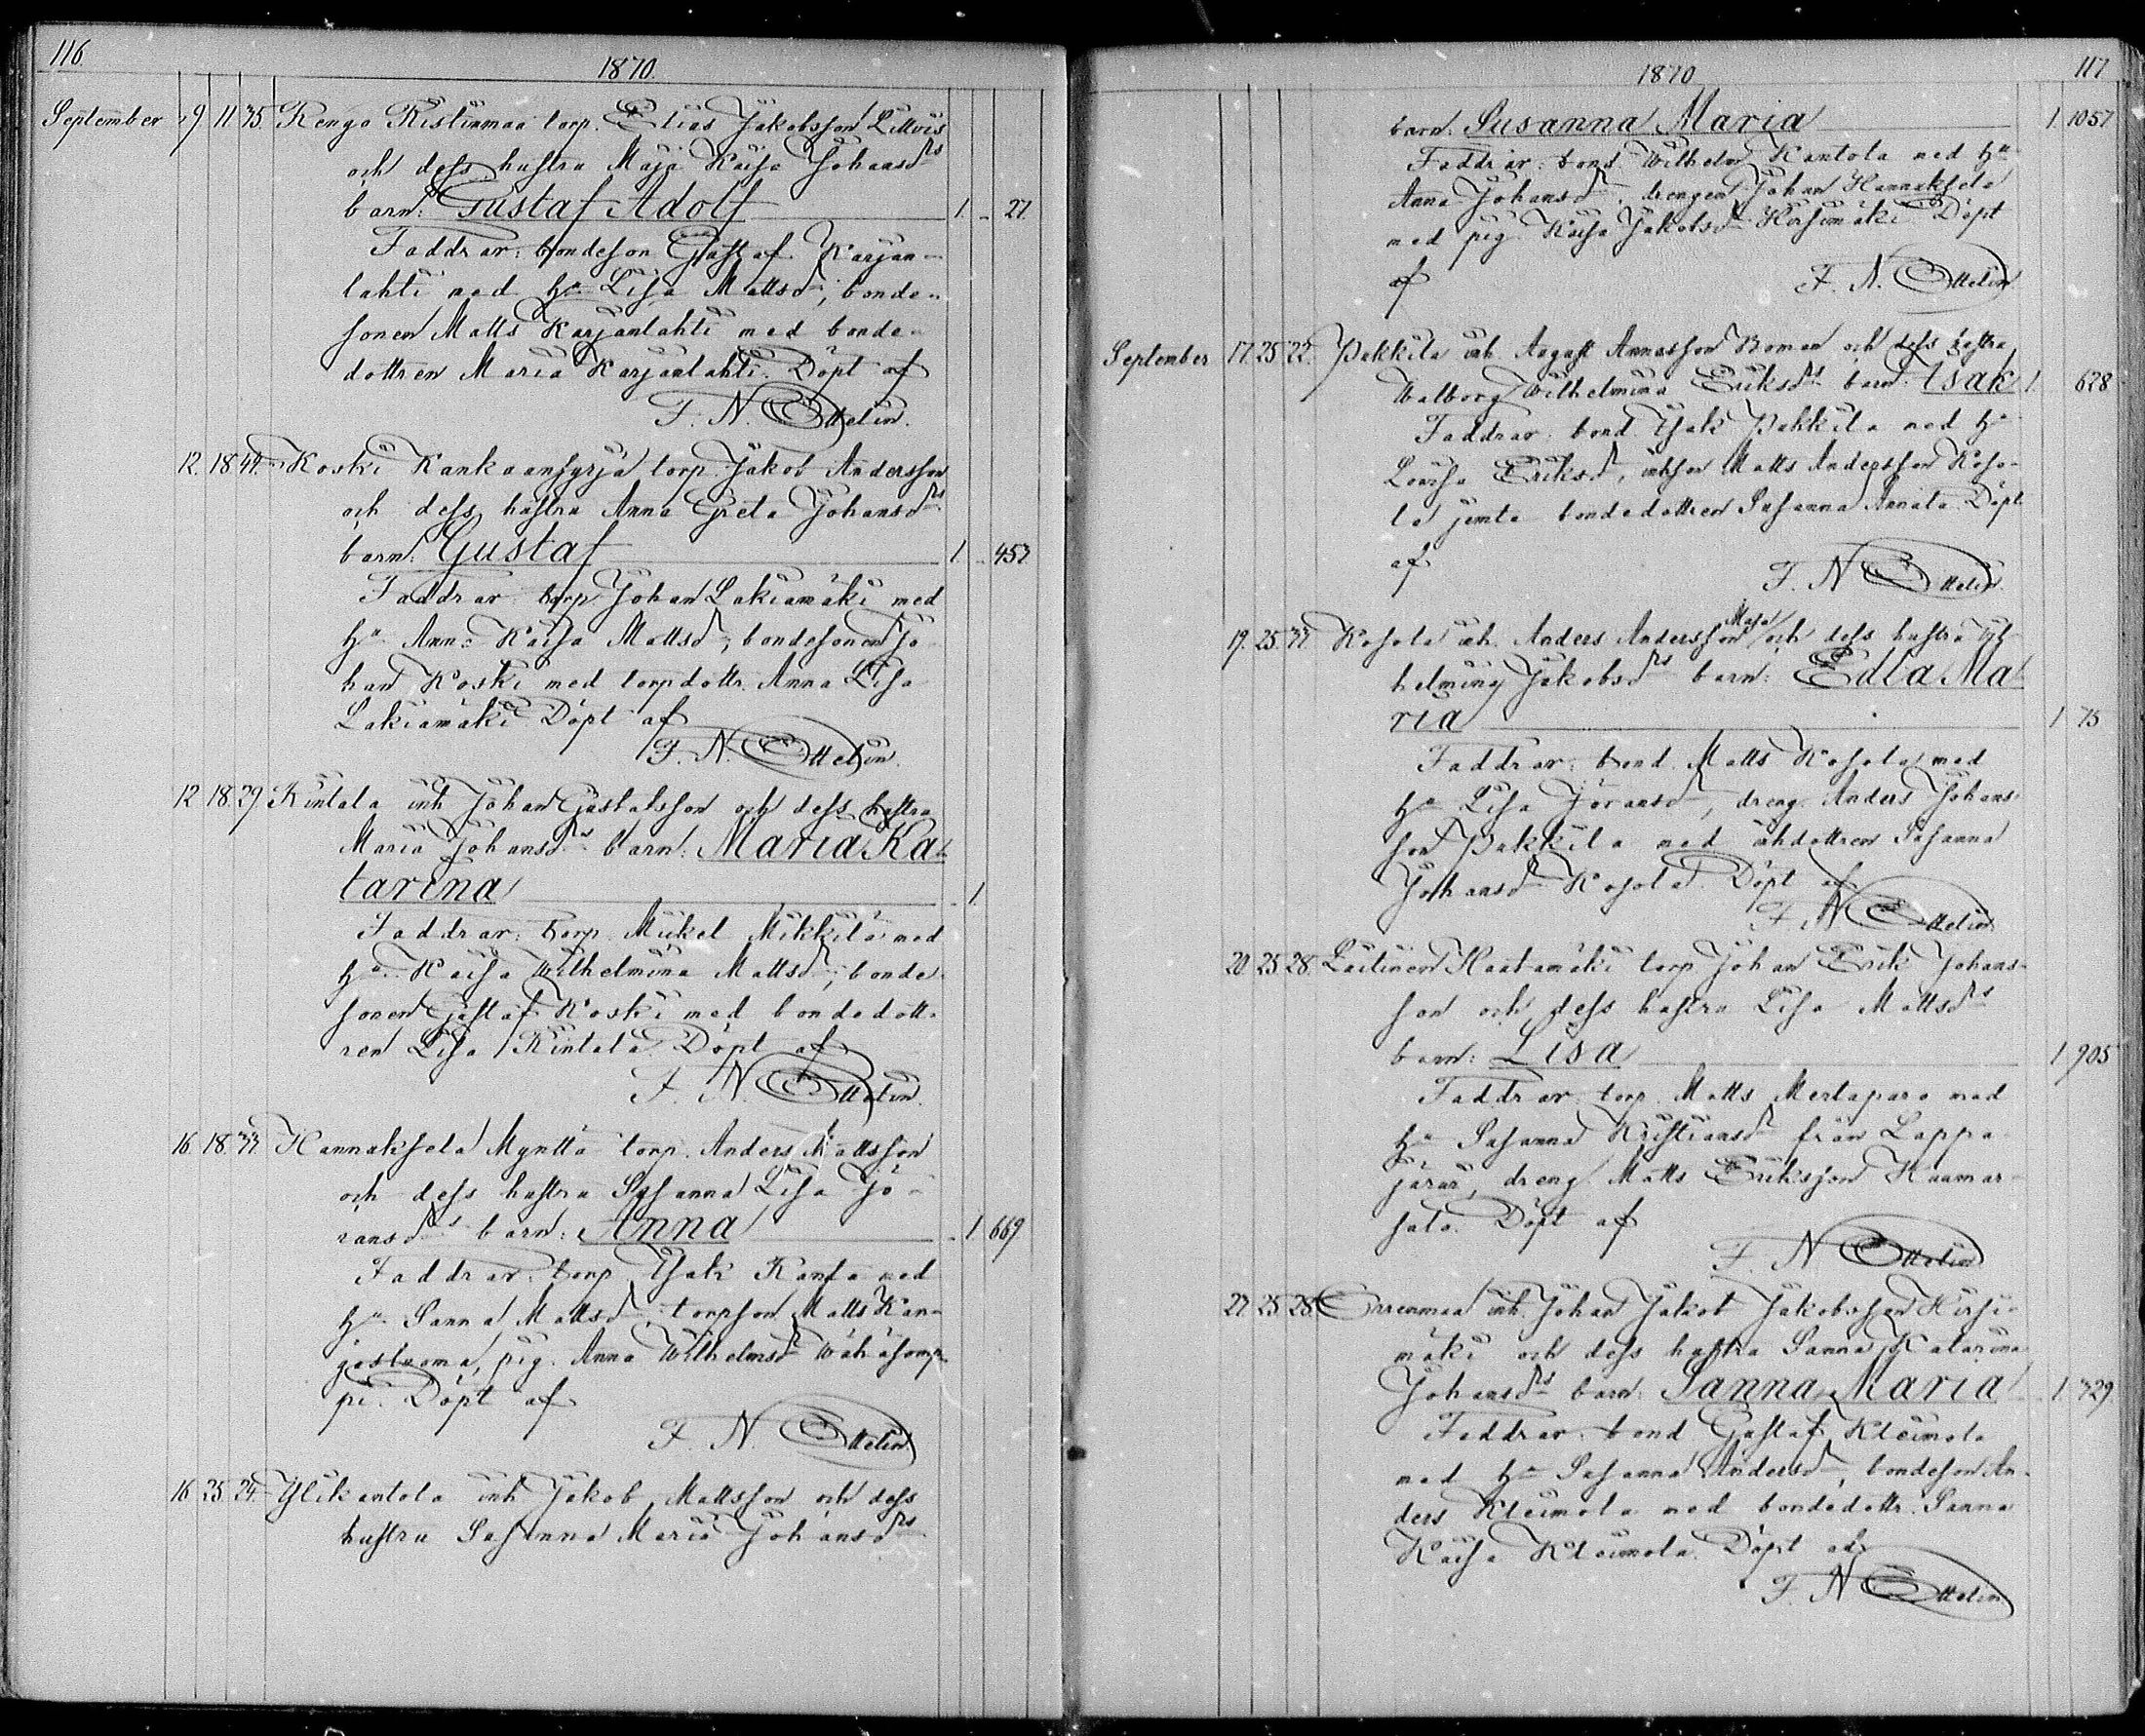 116.
1870.
September 9 11 35. Rengo Ristinmaa torp. Elias Jakobsson Littvis
och dess hustru Maja Kaisa Johansdrs
barn: Gustaf Adolf 1. 27.
Faddrar: bondeson Gustaf Karjan-
lahti med hu Lisa Mattsdr, bonde-
sonen Matts Karjanlahti med bonde-
dottren Maria Karjanlahti. Döpt af
F. N. Ottelin.
12. 18. 44. Koski Kankaansyrjä torp. Jakob Andersson
och dess hustru Anna Greta Johansdrs
barn: Gustaf 1. 457
Faddrar torp Johan Lakiamäki med
hu Anna Kaisa Mattsdr; bondesonen Jo-
han Koski med torpdottr. Anna Lisa
Lakiamäki Döpt af
F. N. Ottelin.
12 18. 29. Rintala inh Johan Gustafsson och dess hustru
Maria Johansdrs barn: Maria Ka-
tarina 1.
Faddrar: torp. Mickel Mikkilä med
hu Kaisa Wilhelmina Mattsdr; bonde-
sonen Gustaf Koski med bondedott-
ren Lisa Rintala. Döpt af
F. N. Ottelin.
16. 18. 33. Hannuksela Myntta torp. Anders Mattsson
och dess hustru Susanna Lisa Jö-
ransdrs barn: Anna 1 669
Faddrar: torp. Isak Kanta med
hu Sanna Mattsdr, torpson Matts Kan-
gastuoma, pig. Anna Wilhelmsdr Wähäsomp-
pi. Döpt af
F. N. Ottelin
16 25. 24. Ylikantola inh Jakob Mattsson och dess
hustru Susanna Maria Johansdrs
1870
117
barn: Susanna Maria 1. 1057
Faddrar: bond. Wilhelm Kantola med hu
Anna Johansdr, drengen Johan Hannuksela
med pig. Kaisa Jakobsdr Hirsimäki Döpt
af F. N. Ottelin
September 17. 25 22. Pukkila inh. August Annasson Roman och dess hustru
Walborg Wilhelmina Eriksdrs barn: Isak 1. 628
Faddrar: bond. Isak Pukkila med hu
Lovisa Eriksdr, inhson Matts Andersson Koso-
la jemte bondedottren Susanna Annala. Döpt
af
F. N Ottelin.
19. 25. 33 Kosola inh. Anders Andersson och dess hustru Maja Wil-
helmina Jakobsdrs barn: Edla Ma-
ria 1 75
Faddrar: bond. Matts Kosola med
hu Lisa Göransdr, dreng. Anders Johans-
son Pukkila med inhdottren Susanna
Johansdr Kosola. Döpt af
F. N Ottelin
20 25 28. Laitinen Haatamäki torp Johan Erik Johans-
son och dess hustru Lisa Mattsdrs
barn: Lisa 1 905
Faddrar: torp. Matts Mertaparo med
hu Susanna Kristiansdr från Lappa-
järvi, dreng Matts Eriksson Haamar-
sala. Döpt af
F. N Ottelin
27. 25 28. Orrenmaa inh. Johan Jakob Jakobsson Hirsi-
mäki och dess hustru Sanna Katarina
Johansdrs barn: Sanna Maria 1. 329.
Faddrar: bond Gustaf Kleimola
med hu Susanna Andersdr, bondeson An-
ders Kleimola med bondedottr. Sanna
Kaisa Kleimola. Döpt af
F. N Ottelin